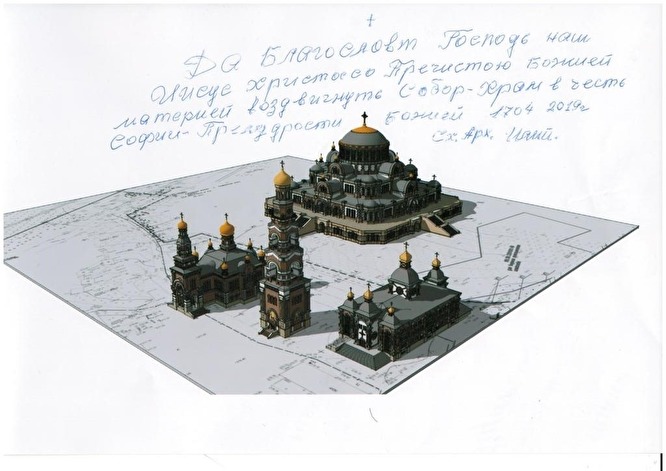 Да Благословт Господь наш
Иисус Христос со Пречистою Божией
материей воздвигнуть Собор-Храм в честь
Софии-Премудрости Божией 1704 2019г
Сх. Арх.